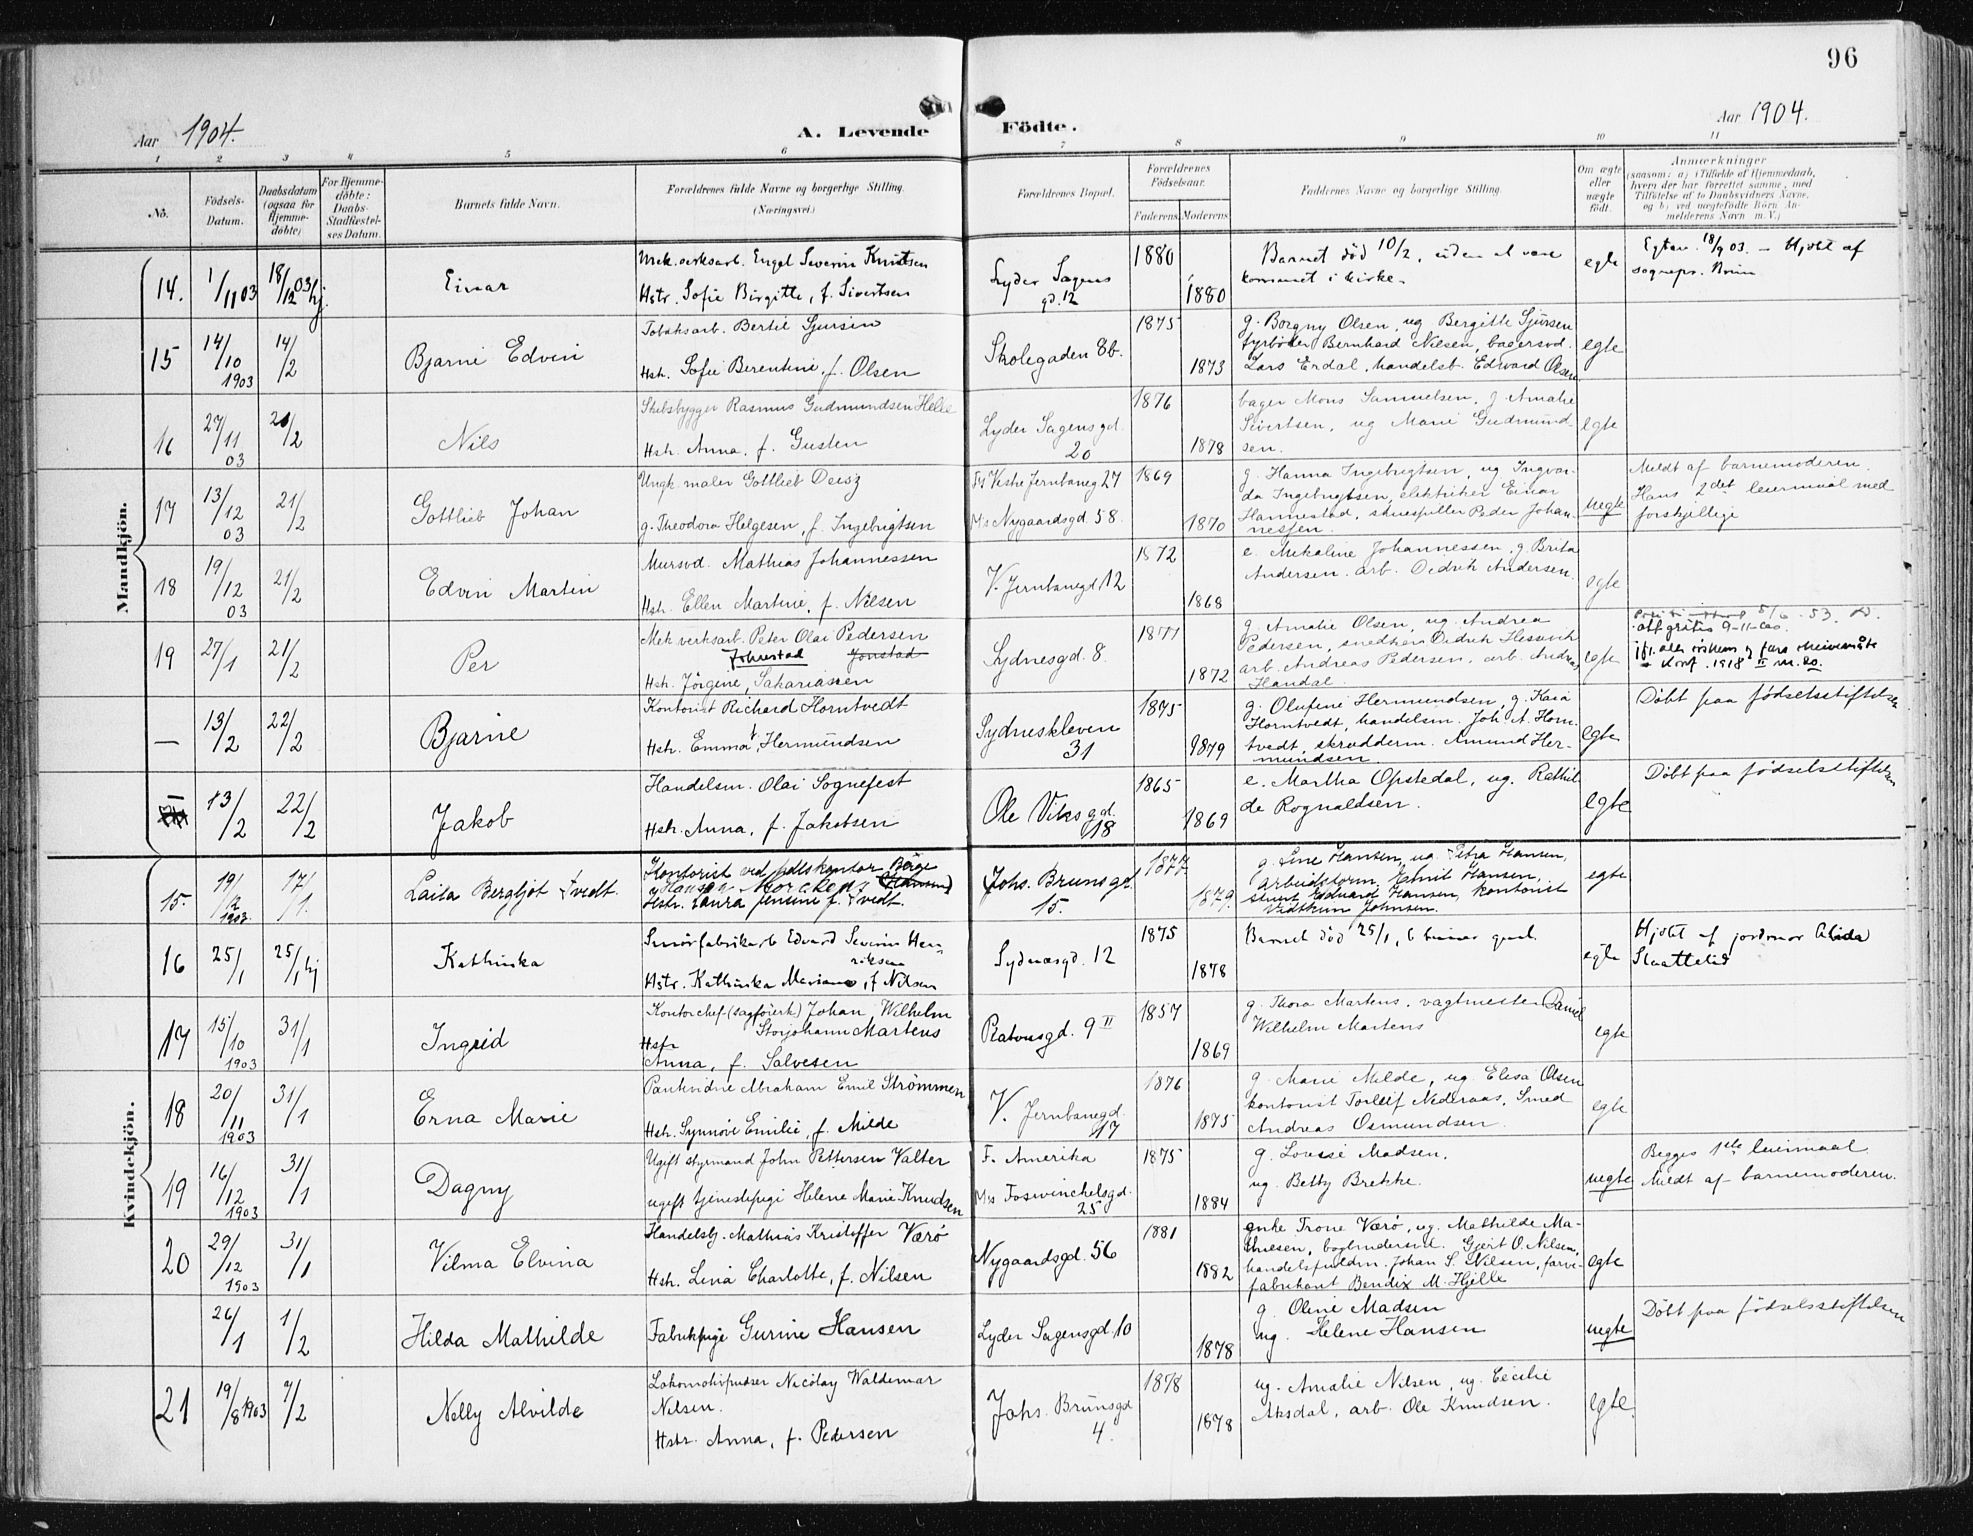 96
Aar 1904.
A. Levende Födte.
Aar 1904.
1 2 3 4 5 6 7 8 9 10 11
No.
Födsels-Datum.
Daabsdatum (ogsaa for Hjemme-döbte)
For Hjemme-döbte: Daabs-Stadfæstel-ses Datum.
Barnets fulde Navn.
Forældrenes fulde Navne og borgerlige Stilling. (Næringsvei.)
Forældrenes Bopæl.
Forældrenes Födselsaar.
Faderens. Moderens.
Faddernes Navne og borgerlige Stilling.
Om ægte eller uægte födt.
Anmærkninger
(saasom: a) i Tilfælde af Hjemmedaab,
hvem der har forrettet samme, med
Tilföielse af to Daabsvidners Navne,
og b) ved uægtefödte Börn An-
melderens Navn m. V.)
Mandkjön.
14. 1/11 03 18/12 03 hj. Einar
Mek.verksarb. Engel Severin Knutsen
Hstr. Sofie Birgitte, f. Sivertsen
Lyder Sagens gd. 12
1880 1880
Barnet död 10/2, uden at være
kommet i kirke.
egte
Egtev. 18/9 03. – Hjdbt af
sognepr. Brun
15 14/10 1903 14/2 Bjarne Edvin
Tobaksarb. Bertil Sjursen
Hstr. Sofie Berentine, f. Olsen
Skolegaden 8b.
1875 1873
g. Borgny Olsen, ug Bergitte Sjursen
fyrböder Bernhard Nilsen, bagersvd.
Lars Erdal, handelsb. Edvard Olsen
egte
16 27/11 03 21/2 Nils
Skibsbygger Rasmus Gudmundsen Helle
Hstr. Anna, f. Gusten
Lyder Sagens gd. 20
1876 1878
bager Mons Samuelsen, g Amalie
Sivertsen, ug Marie Gudmund-
sen.
egte
17 13/12 03 21/2 Gottlieb Johan
Ungk. maler Gottlieb Deisz
g. Theodora Helgesen, f. Ingebrigtsen
Fs Vestre Jernbaneg 27
Ms Nygaardsgd. 58.
1869 1870
g. Hanna Ingebrigtsen, ug Ingvar-
da Ingebrigtsen, elektriker Einar
Hannestad, skuespiller Peder Johan-
nesen.
uegte
Meldt af barnemoderen.
Hans 2det leiermaal med
forskjellige
18 19/12 03 21/2 Edvin Martin
Mursvd. Mathias Johannessen
Hstr. Ellen Martine, f. Nilsen
V. Jernbanegd 12
1872 1868
e. Mekaline Johannessen, g. Brita
Andersen. arb. Didrik Andersen.
egte
19 27/1 21/2 Per
Mek. verksarb. Peter Olai Pedersen
Johnstad Jonstad
Hstr. Jörgine, Sakariassen
Sydnesgd. 8.
1877 1872
g. Amalie Olsen, ug. Andrea
Pedersen, snedker Didrik Hesvik
arb. Andreas Pedersen, arb. Andreas
Handal.
egte
5/6 - 53.
att gratis 9-11-60.
Konf. 1918
— 13/2 22/2 Bjarne
Kontorist Richard Horntvedt
Hstr. Emma f. Hermundsen
Sydneskleven 31
1875 1879
g. Olufine Hermundsen, g. Kaia
Horntvedt, handelsm. Joh. A. Horn-
tvedt, skrædderm. Amund Her-
mundsen
egte
Döbt paa födselsstiftelsen
— 13/2 22/2 Jakob
Handelsm. Olai Sognefest
Hstr. Anna, f. Jakobsen
Ole Viksgd. 18
1865 1869
e. Martha Opstedal, ug. Rathil-
de Rognaldsen.
egte
Döbt paa födselsstiftelsen
Kvindekjön.
15. 19/12 1903. 17/1. Laila Bergljot Tvedt.
Kontorist ved politikontor Börge
Hansen Morckens (Hansen)
Hstr. Laura Jensine f. Tvedt.
Johs. Brunsgd. 15.
1877. 1877. 1879.
g. Line Hansen, ug. Petra Hansen,
arbeidsform. Emil Hansen,
stuert Edvard Hansen, kontorist
Vidskun Johnsen.
egte
16 25/1 25/1 hj Kathinka
Smörfabrikarb Edvard Severin Hen-
riksen
Hstr. Kathinka Mariane, f Nilsen
Sydnæsgd. 12
1875 1878
Barnet död 25/1, 6 timer gml.
egte
Hjdbt af jordmor Alida
Slaattelid
17 15/10 1903 31/1 Ingrid
Kontorchef (sagförerk) Johan Wilhelm
Storjohann Martens
Hstr
Anna, f. Salvesen
Ratvusgd. 9 II
1857 1869
g. Thora Martens, vagtmester Daniel
Wilhelm Martens
egte
18 20/11 1903 31/1 Erna Marie
Pantvidne Abraham Emil Strömmen
Hstr. Synnöve Emilie, f. Milde
V. Jernbanegd. 17
1876 1875
g. Marie Milde, ug. Elisa Olsen
kontorist Torleif Nedraas, Smed
Andreas Osmundsen.
egte
19 16/12 1903 31/1 Dagny
Ugift styrmand John Pettersen Valter
ugift tjenestepige Helene Marie Knudsen
F. Amerika
Ms Foswinchelsgd. 25
1875 1884
g. Lovise Madsen.
ug. Betty Brekke.
uegte
Begges 1ste leiermaal
Meldt af barnemoderen.
20 29/12 1903 31/1 Vilma Elvina
Handelsb. Mathias Kristoffer Værö
Hstr. Lina Charlotte, f. Nilsen
Nygaardsgd. 56
1881 1882
enke Trone Værö, ug. Mathilde Ma-
thiesen, bogbindersvd. Gjert O. Nilsen,
handelsfuldm. Johan S. Nilsen, farve-
fabrikant Bendix M. Hjelle
egte
26/1 1/2 Hilda Mathilde
Fabrikpige Gurine Hansen
Lyder Sagensgd. 10
1878
g. Oline Madsen
ug. Helene Hansen
uegte
Döbt paa födselsstiftelsen
21 19/8 1903 7/2 Nelly Alvilde
Lokomotivpudser Nicolay Waldemar
Nilsen.
Hstr. Anna, f. Pedersen
Johs. Brunsgd 4.
1878 1878
ug. Amalie Nilsen, ug. Cecilie
Aksdal, arb. Ole Knudsen.
egte.